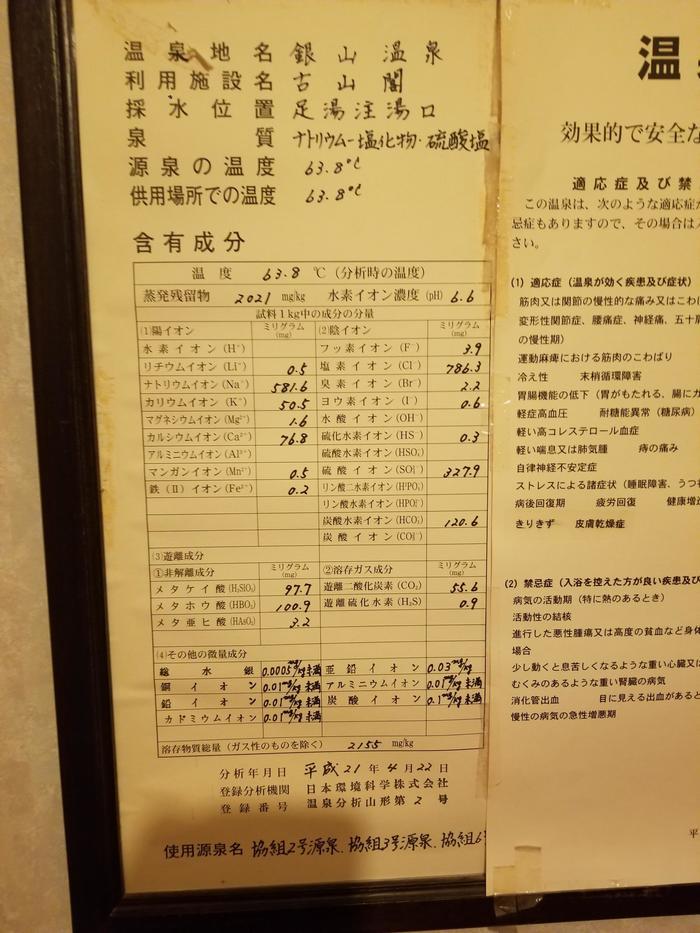 温泉地名 銀山温泉
利用施設名 古山閣
採水位置 足湯注湯口
泉質 ナトリウムー塩化物・硫酸塩
源泉の温度 63.8℃
供用場所での温度 63.8℃
含有成分
温度 63.8 ℃(分析時の温度)
蒸発残留物 2021 mg/kg 水素イオン濃度(pH) 6.6
試料1kg中の成分の分量
(1)陽イオン ミリグラム(mg) (2)陰イオン ミリグラム(mg)
水素イオン(H⁺) フッ素イオン(F⁻) 3.9
リチウムイオン(Li⁺) 0.5 塩素イオン(Cl⁻) 786.3
ナトリウムイオン(Na⁺) 581.6 臭素イオン(Br⁻) 2.2
カリウムイオン(K⁺) 50.5 ヨウ素イオン(I⁻) 0.6
マグネシウムイオン(Mg²⁺) 1.6 水酸イオン(OH⁻)
カルシウムイオン(Ca²⁺) 76.8 硫化水素イオン(HS⁻) 0.3
アルミニウムイオン(Al³⁺) 硫酸水素イオン(HSO₄⁻)
マンガンイオン(Mn²⁺) 0.5 硫酸イオン(SO₄²⁻) 327.9
鉄(Ⅱ)イオン(Fe²⁺) 0.2 リン酸二水素イオン(H₂PO₄⁻)
リン酸水素イオン(HPO₄²⁻)
炭酸水素イオン(HCO₃⁻) 120.6
炭酸イオン(CO₃²⁻)
(3)遊離成分
①非解離成分 ミリグラム(mg) ②溶存ガス成分 ミリグラム(mg)
メタケイ酸(H₂SiO₃) 97.7 遊離二酸化炭素(CO₂) 55.6
メタホウ酸(HBO₂) 100.9 遊離硫化水素(H₂S) 0.9
メタ亜ヒ酸(HAsO₂) 3.2
(4)その他の微量成分
総水銀 0.0005mg/kg未満 亜鉛イオン 0.03mg/kg
銅イオン 0.01mg/kg未満 アルミニウムイオン 0.01mg/kg未満
鉛イオン 0.01mg/kg未満 炭酸イオン 0.1mg/kg未満
カドミウムイオン 0.01mg/kg未満
溶存物質総量(ガス性のものを除く) 2155 mg/kg
分析年月日 平成21年4月22日
登録分析機関 日本環境科学株式会社
登録番号 温泉分析山形第2号
使用源泉名 協組2号源泉、協組3号源泉、協組6
温
効果的で安全な
適応症及び禁
この温泉は、次のような適応症が
忌症もありますので、その場合は
さい。
(1) 適応症(温泉が効く疾患及び症状)
筋肉又は関節の慢性的な痛み又はこわ
変形性関節症、腰痛症、神経痛、五十肩
の慢性期)
運動麻痺における筋肉のこわばり
冷え性 末梢循環障害
胃腸機能の低下(胃がもたれる、腸にガ
軽症高血圧 耐糖能異常(糖尿病)
軽い高コレステロール血症
軽い喘息又は肺気腫 痔の痛み
自律神経不安定症
ストレスによる諸症状(睡眠障害、うつ
病後回復期 疲労回復 健康増進
きりきず 皮膚乾燥症
(2) 禁忌症(入浴を控えた方が良い疾患及び
病気の活動期(特に熱のあるとき)
活動性の結核
進行した悪性腫瘍又は高度の貧血など身体
場合
少し動くと息苦しくなるような重い心臓又は
むくみのあるような重い腎臓の病気
消化管出血 目に見える出血があると
慢性の病気の急性増悪期
平